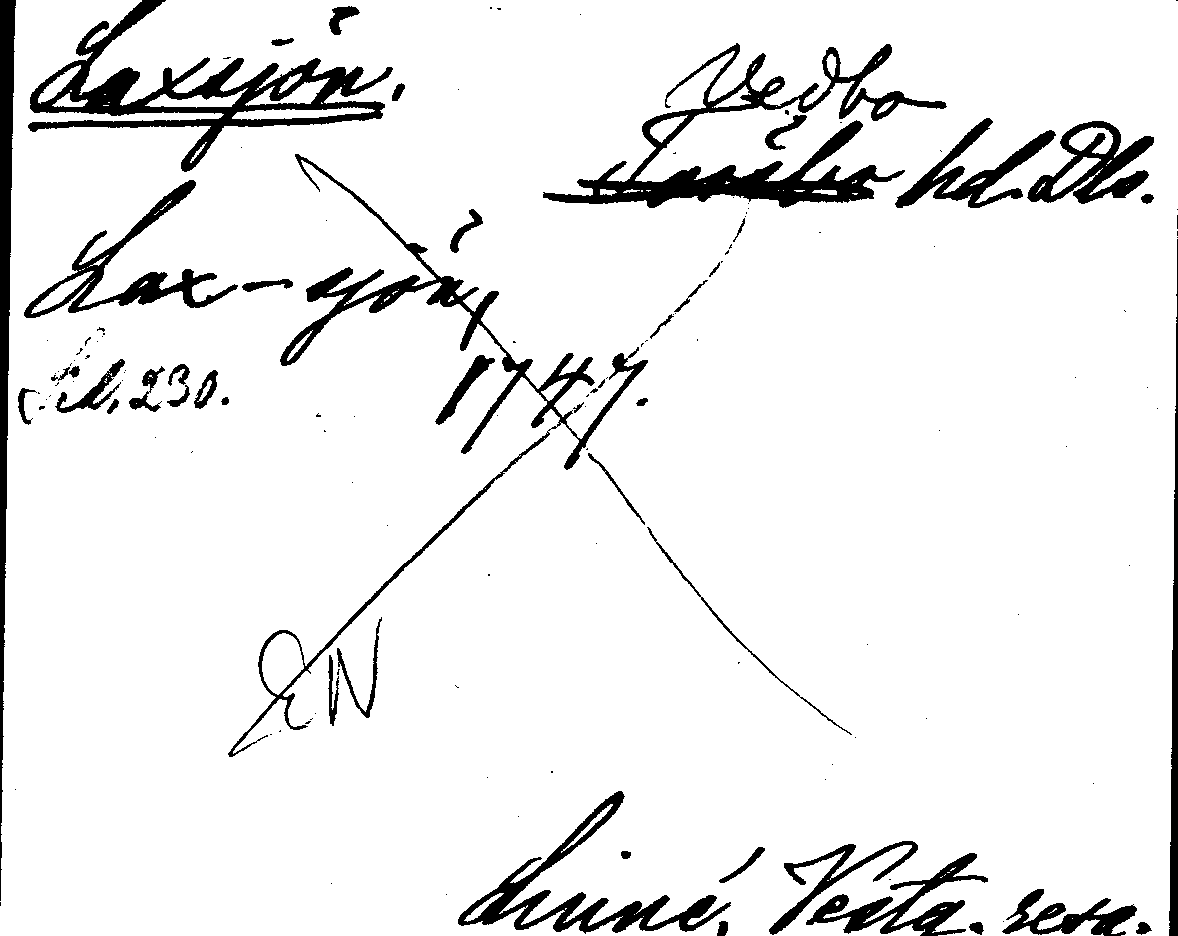 Laxsjön.
Vedbo
Tössbo hd. Dls.
Lax-sjön,
Sid. 230.
1747.
EN
Linné, Västg. resa.